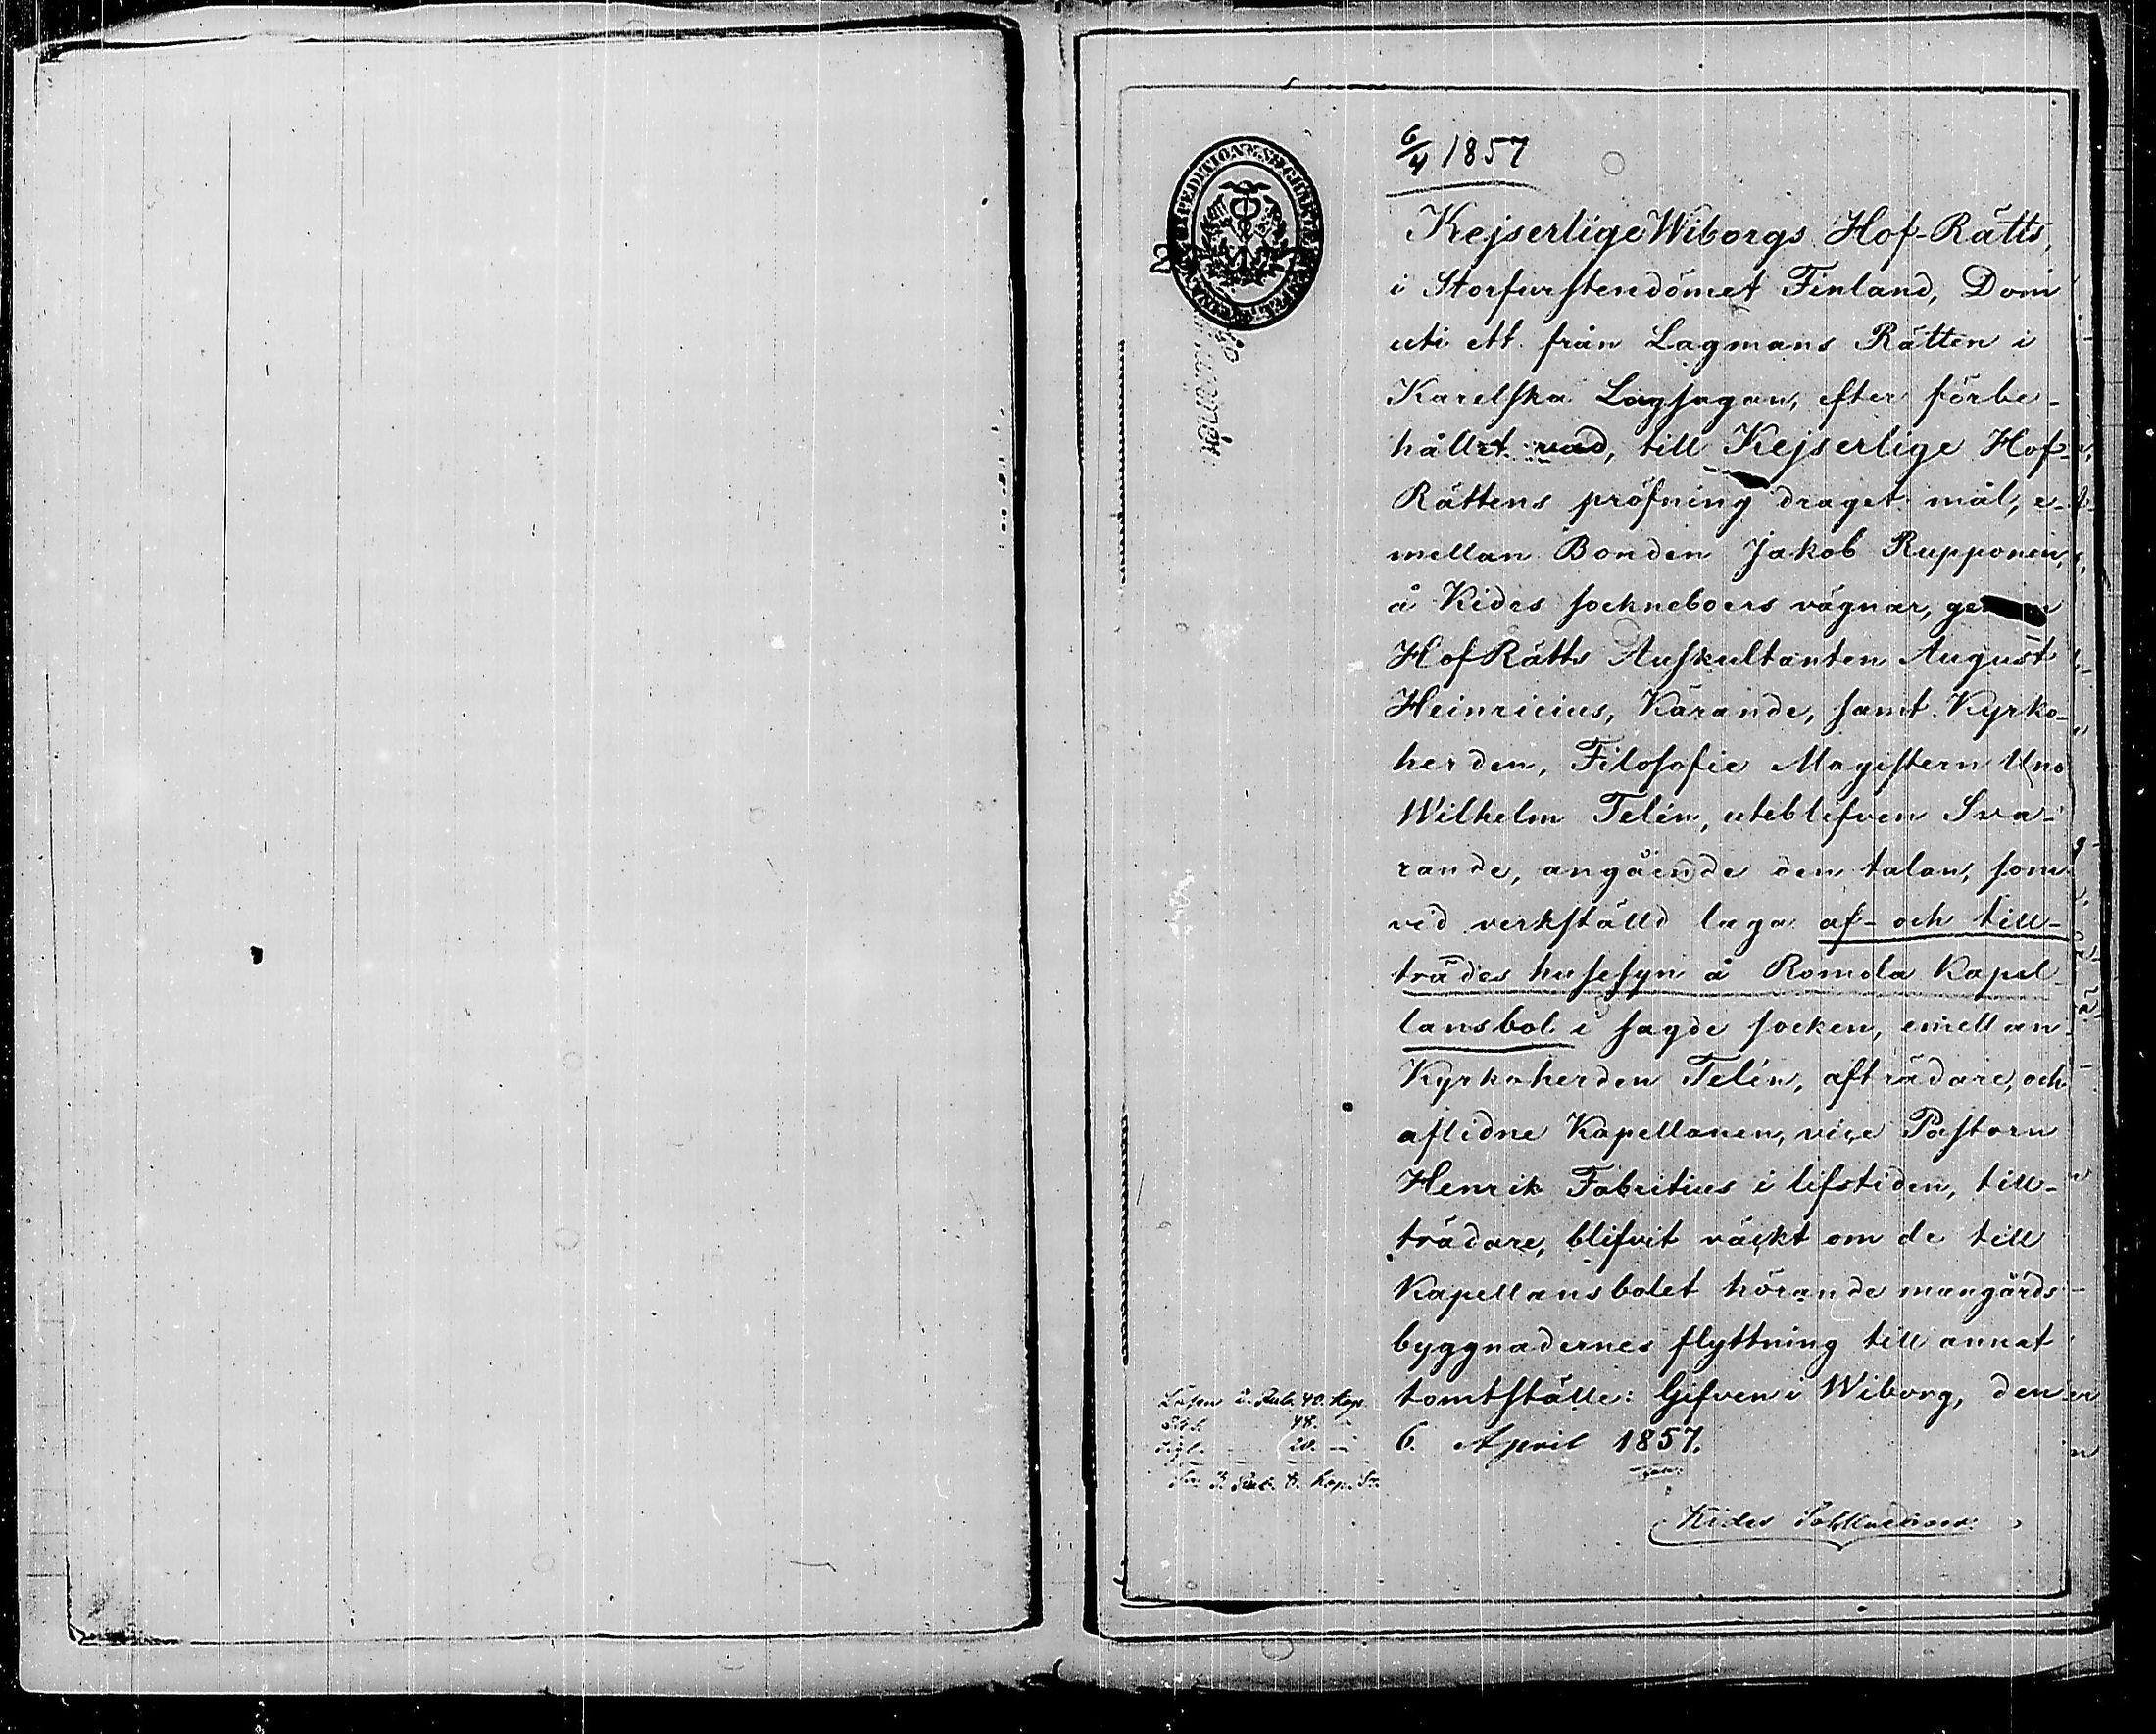 6/4 1857
Kejserlige Wiborgs Hof-Rätts,
i Storfurstendömet Finland, Dom
uti ett från Lagmans Rätten i
Karelska Lagsagan, efter förbe-
hållet vad, till Kejserlige Hof-
Rättens pröfning draget mål, e-
mellan Bonden Jakob Rupponen,
å Kides sockneboers vägnar,
HofRätts Auskultanten August
Heinricius, Kärande, samt Kyrko-
herden, Filosofie Magistern Uno
Wilhelm Telén, uteblifven Sva-
rande, angående den talan, som
vid verkställd laga af- och till-
trädes husesyn å Romola Kapel-
lansbol i sagde socken, emellan
Kyrkoherden Telén, afträdare, och
aflidne Kapellanen, vice Pastorn
Henrik Fabritius i lifstiden, till-
trädare, blifvit väckt om de till
Kapellansbolet hörande mangårds-
byggnadernes flyttning till annat
tomtställe: Gifven i Wiborg, den
6. April 1857.
Lösen 2. Rub. 40. Kop.
48.
20. —
3. Rub. 8. Kop. Sr.
Kides Sockneboer.